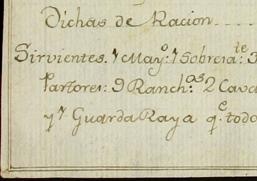 Dichas de Racion
Sirvientes. 1 Mayo: 1 Sobresa:te 3
Pastores: 9 Ranch:os 2 Cava
y 1 Guarda Raya q.e todo